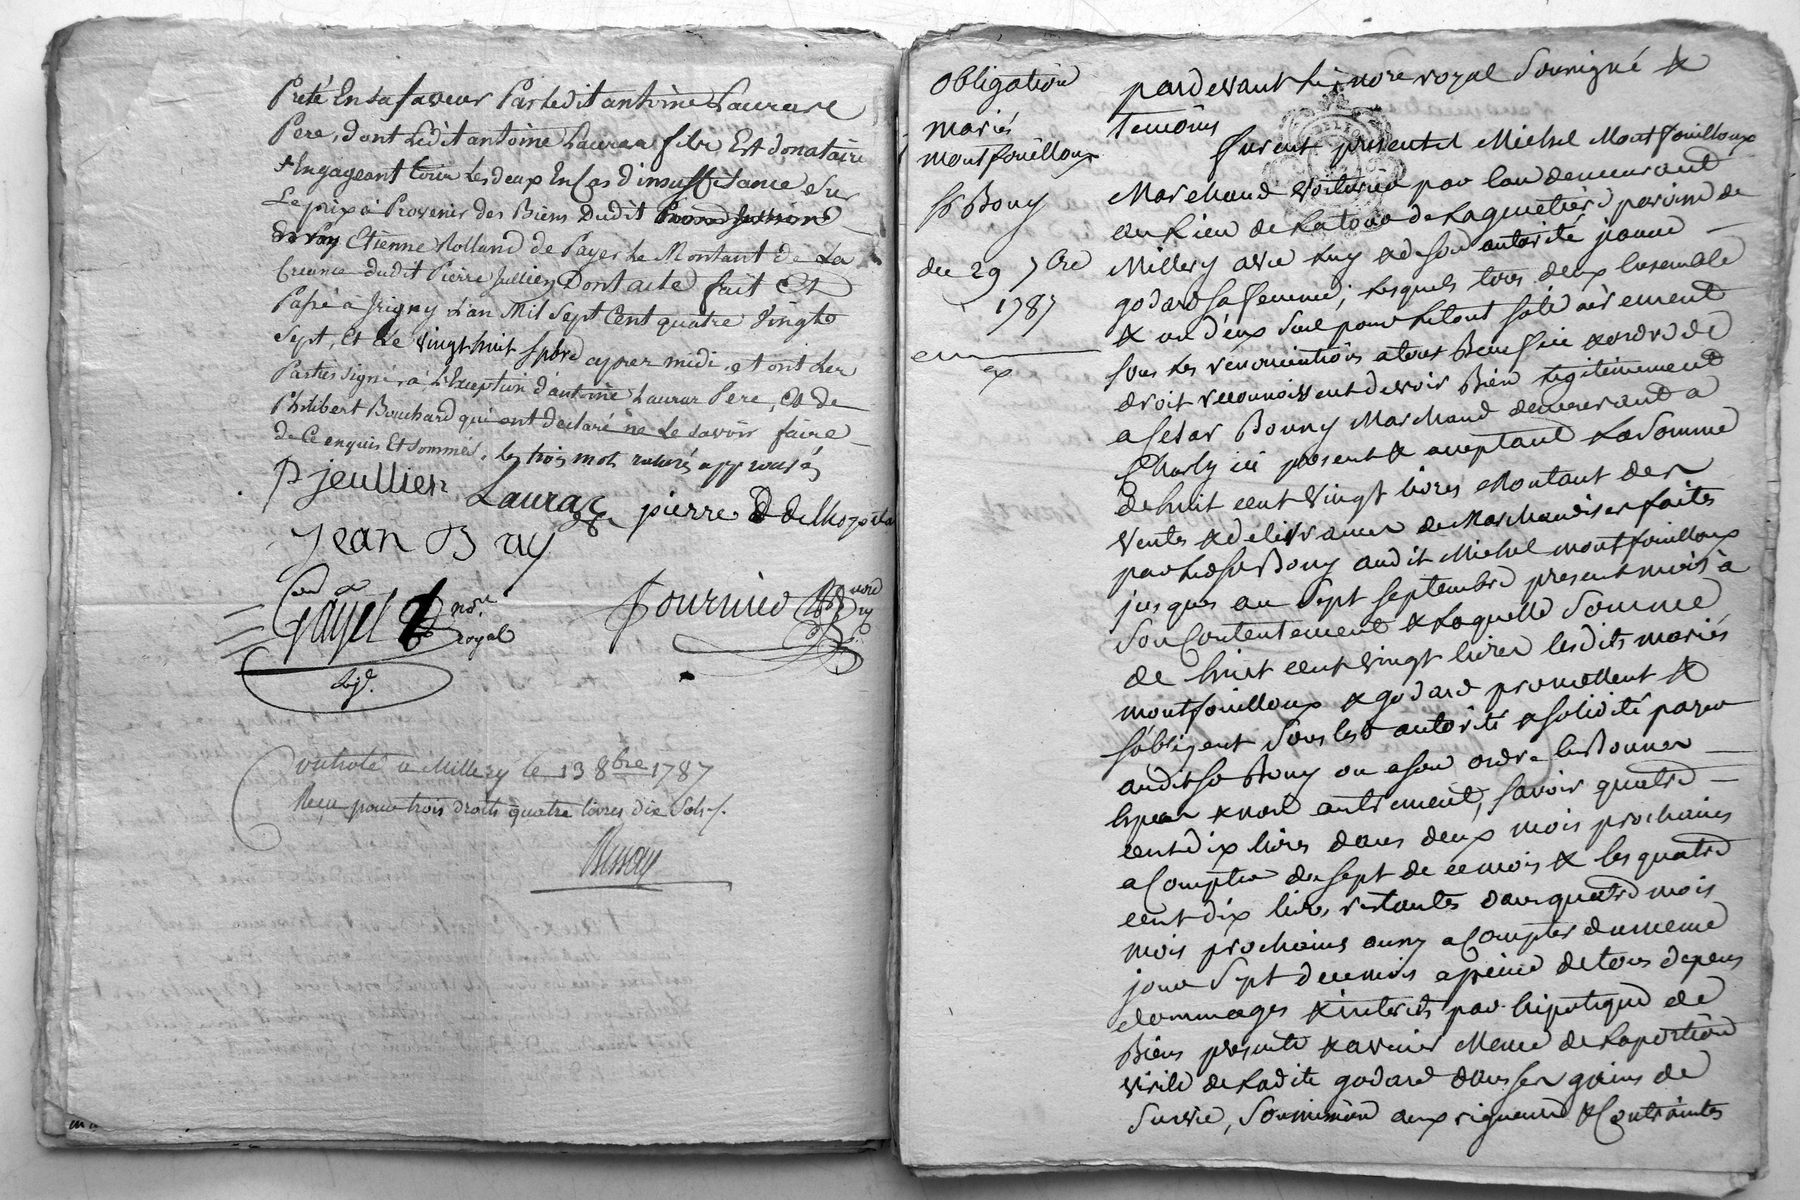 Prêté En sa faveur Par ledit antoine Laurare
Pere, dont Ledit antoine Lauras fils Est donataire
S'Engageant tous Les deux En Cas d'insuffisance sur
Le prix à Provenir des Biens Dudit
Etienne Rolland de Payer Le Montant de La
Creance dudit Pierre Jullien Dont acte fait Et
Passé a Irigny L'an Mil Sept Cent quatre Vingts
Sept, Et Le vingt huit 7bre apres midi, et ont Les
Parties signé, à L'Exception d'antoine Lauras Pere, Et de
Philibert Bouchard qui ont declaré ne Le savoir faire
de Ce enquis Et sommés. les trois mots raturés approuvés
P jeullien Lauras pierre delhopital
Jean Bay
Gayet nore royal
Fournier
Controlé a Millery le 13 8bre 1787
Reçu pour trois droits quatre livres dix Sols
obligation
mariés
montfouilloux
Sr Bony
du 29 7bre
1787
pardevant Le nore royal Soussigné &
temoins
furent presents Michel Montfouilloux
Marchand voiturier par eau demeurant
au Lieu de La tour de Lagueretiere paroisse de
Millery avec Luy & de son autorité jeanne
godard sa femme, Lesquels tous deux Ensemble
& un d'eux seul pour Le tout solidairement
sous Les renonciations a tout Benefice & ordre de
droit reconnoissent devoir Bien Legitimement
a Cesar Bonny Marchand demeurant a
Charly ici present & acceptant La Somme
de huit cent vingt livres Montant des
ventes & delivrances de Marchandises faites
par Led Sr Bony audit Michel montfouilloux
jusques au Sept Septembre present mois à
Son Contentement & Laquelle Somme
de huit cent vingt livres lesdits mariés
montfouilloux & godard promettent &
s'obligent sous les autorité & solidité payer
audit Sr Bony ou a son ordre
& non autrement, savoir quatre
cent dix livres dans deux mois prochains
a Compter du sept de ce mois & les quatre
cent dix livres restantes dans quatre mois
mois prochains aussy a Compter du meme
jour sept de ce mois a peine de tous depens
dommages & interets par hipoteque de
Biens presents & avenir Meme de La portion
virile de Ladite godard dans ses gains de
Survie, Soumission aux rigueurs & Contraintes